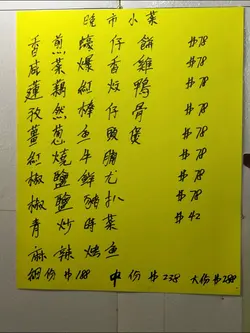 晚市小菜
香煎蠔仔餅 $78
咸菜爆香雞 $78
蓮藕紅炆鴨 $78
孜然棒仔骨 $78
薑葱魚頭煲 $78
紅燒牛腩 $78
椒鹽鮮尤 $78
椒鹽豬扒 $78
青炒時菜 $42
麻辣烤魚
細份$188 中份$238 大份$288